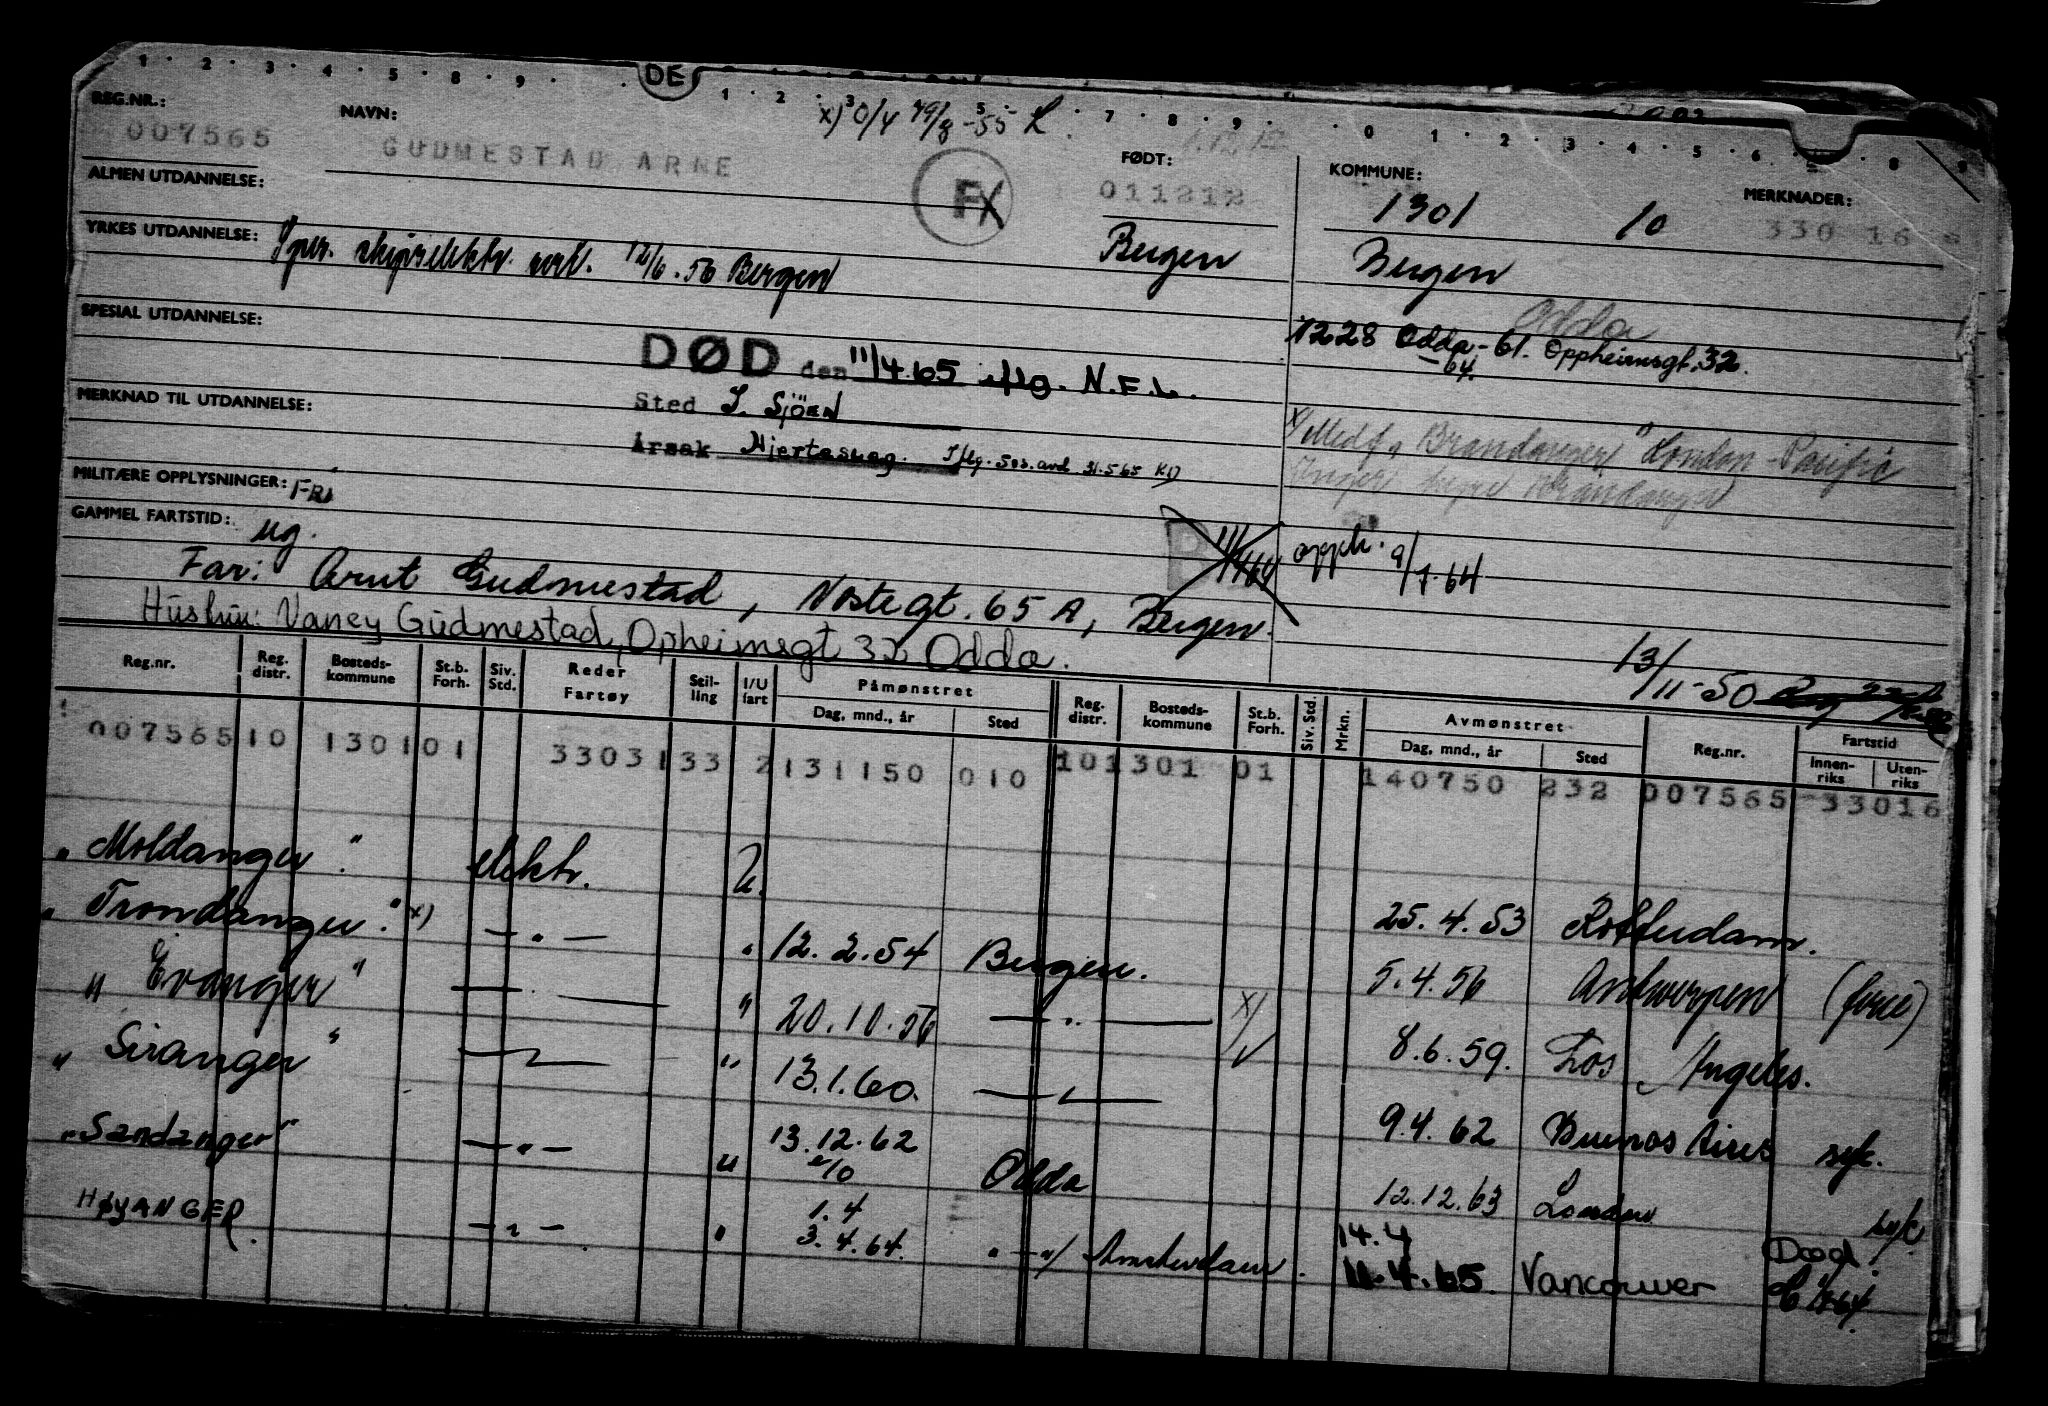 1 · 2 · 3 · 4 · 5 · 8 · 9 · DE 1 · 2 · 3 · 5 · 7 · 8 · 9 · 0 · 1 · 2 · 3 · 4 · 5 · 6 · 8 · 9
REG.NR.: NAVN: FØDT: KOMMUNE: MERKNADER:
007565 GUDMESTAD ARNE FX 011212 1301 10 330 16
ALMEN UTDANNELSE:
YRKES UTDANNELSE: skipselektr. 12/6.56 Bergen Bergen Bergen
SPESIAL UTDANNELSE: Odda
DØD den 11/4.65 iflg. N.F.L. 1228 Odda-61. Oppheimsgt.32.
-64.
Sted I Sjöen
MERKNAD TIL UTDANNELSE:
Årsak Hjertesvag. Iflg. Sos.avd 31.5.65 KD
x) Medf. "Brandanger" London Pacific
MILITÆRE OPPLYSNINGER: FRI
GAMMEL FARTSTID: ug. opph. 9/1.64
Far: Arnt Gudmestad, Nøstegt. 65 A, Bergen.
Hustru: Vaney Gudmestad, Opheimsgt 32 Odda.
13/11-50
Reg.nr. Reg. distr. Bosteds-kommune St.b. Forh. Siv. Std. Reder Fartøy Stil-ling I/U fart Påmønstret Dag, mnd., år Sted Reg. distr. Bosteds-kommune St.b. Forh. Siv. Std. Mrkn. Avmønstret Dag, mnd., år Sted Reg.nr. Fartstid Innen-riks Uten-riks
007565 10 1301 01 33031 33 2 131150 010 10 1301 01 140750 232 007565 33016
"Moldanger" elektr. U. 25.4.53 Rotterdam.
"Trondanger" x) —"— " 12.2.54 Bergen. 5.4.56 Antwerpen
"Evanger" —"— " 20.10.56 —"— x) 8.6.59. Los Angeles.
"Siranger" —"— " 13.1.60. —"— 9.4.62 Buenos Aires syk.
"Sandanger" —"— " 13.12.62 Odda 12.12.63 London syk.
HØYANGER. —"— " 1.4 3.4.64. Amsterdam. 14.4 11.4.65. Vancouver Død